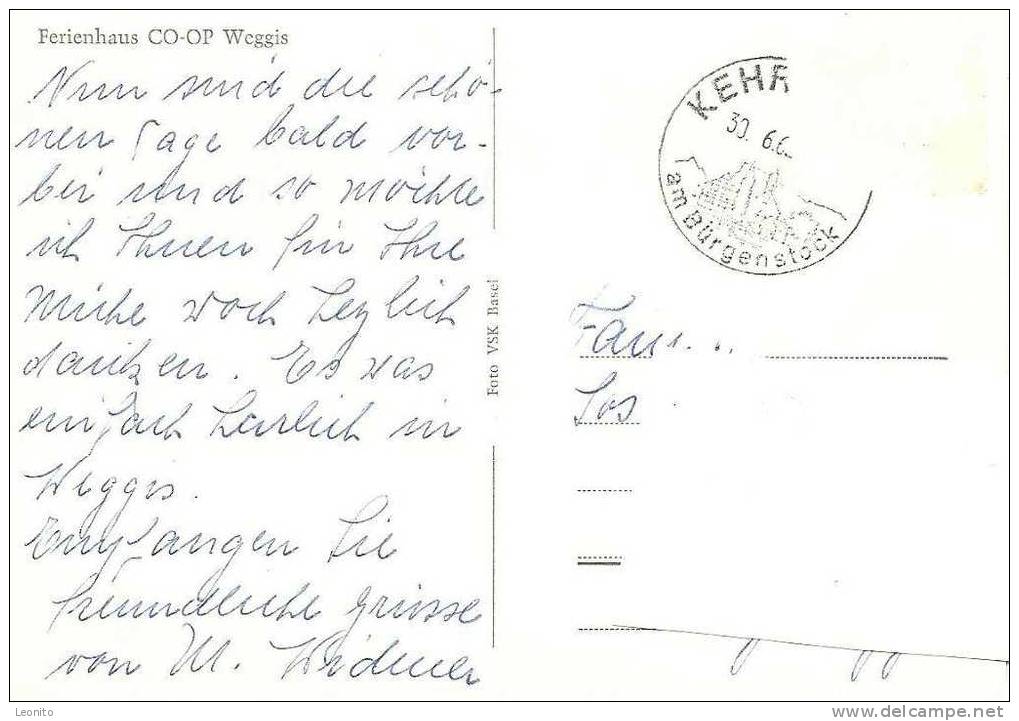 Ferienhaus CO-OP Weggis
Nun sind die schö-
nen Tage bald vor-
bei und so möchte
ich Ihnen für Ihre
Mühe noch herzlich
danken. Es was
einfach herrlich in
Weggis.
Empfangen Sie
freundliche Grüsse
von M. Widmer
Foto VSK Basel
KEHR
30. 6.6
am Bürgenstock
Fam...
Leonito
www.delcampe.net